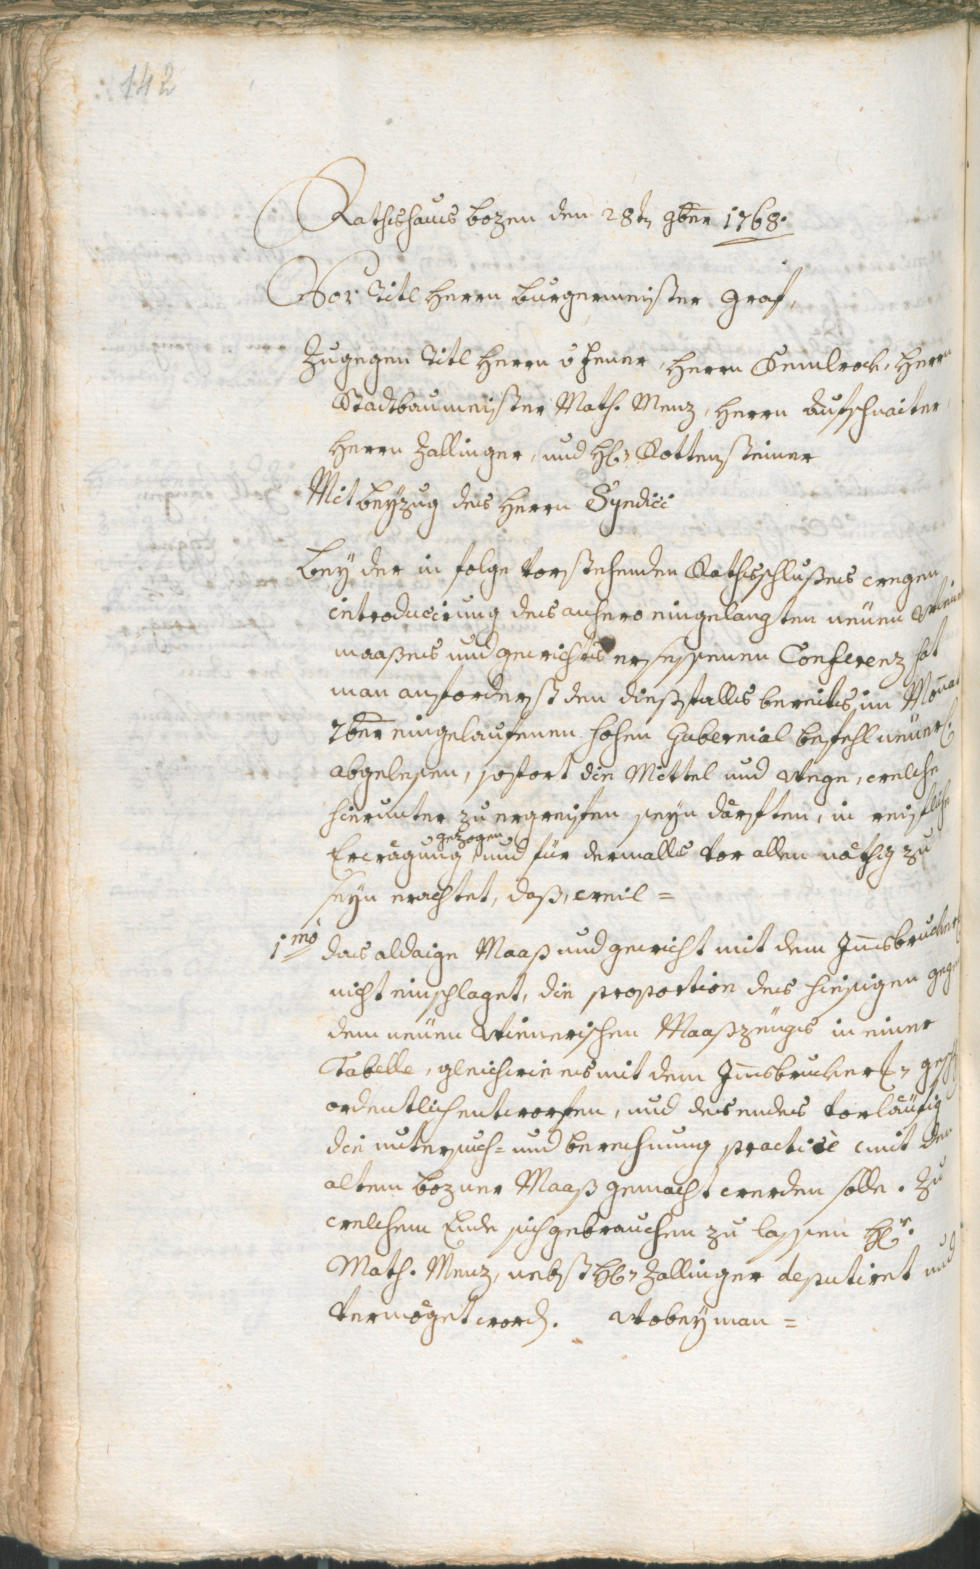 142
Rathshaus bozen den 28t, 9ber 1768.
Vor Titl Herrn burgermeister Graf,
Zugegen Titl Herrn v Hener, Herrn Kemlrock, Herrn
Stadtbaumeister Math. Menz, Herrn Aufschnaiter,
Herrn Zallinger, und H: Rottensteiner
Mit beyzug des Herrn Syndici
bey der in folge vorstehenden Rathsschlußes wegen
introducirung des anhero eingelangten neuen
maaßes und gewichts ersessenen Conferenz hat
man anforderst den dießfalls bereits im Monat
7ber eingelaufenen hohen Gubernial befehl
abgelesen, sofort die Mittel und weege, welche
hierunter zu ergreifen seyn därften, in reifliche
gezogen
Erwägung und für dermalls vor allen nöthig zu
seyn erachtet, daß, weil =
1mo das aldaige Maaß und gewicht mit dem Innsbrucker
nicht einschlaget, die proportion des hiesigen gegen
dem neuen Wienerischen Maaßzeugs in einer
Tabelle, gleichwie es mit dem Innsbrucker
ordentlich entworfen, und des endes vorläufig
die untersuch= und berechnung practicè mit den
altem bozner Maaß gemacht werden solle. Zu
welchem Ende sich gebrauchen zu lassen Hr.
Math. Menz, nebst H: Zallinger deputiret und
vermöget word. Wobey man =